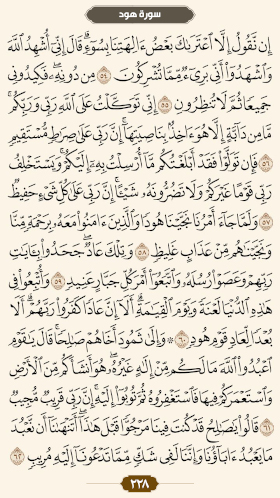 سورة هود
إِن نَّقُولُ إِلَّا ٱعْتَرَىٰكَ بَعْضُ ءَالِهَتِنَا بِسُوٓءٍ ۗ قَالَ إِنِّىٓ أُشْهِدُ ٱللَّهَ
وَٱشْهَدُوٓا۟ أَنِّى بَرِىٓءٌ مِّمَّا تُشْرِكُونَ ٥٤ مِن دُونِهِۦ ۖ فَكِيدُونِى
جَمِيعًا ثُمَّ لَا تُنظِرُونِ ٥٥ إِنِّى تَوَكَّلْتُ عَلَى ٱللَّهِ رَبِّى وَرَبِّكُم ۚ
مَّا مِن دَآبَّةٍ إِلَّا هُوَ ءَاخِذٌۢ بِنَاصِيَتِهَآ ۚ إِنَّ رَبِّى عَلَىٰ صِرَٰطٍ مُّسْتَقِيمٍ
٥٦ فَإِن تَوَلَّوْا۟ فَقَدْ أَبْلَغْتُكُم مَّآ أُرْسِلْتُ بِهِۦٓ إِلَيْكُمْ ۚ وَيَسْتَخْلِفُ
رَبِّى قَوْمًا غَيْرَكُمْ وَلَا تَضُرُّونَهُۥ شَيْـًٔا ۚ إِنَّ رَبِّى عَلَىٰ كُلِّ شَىْءٍ حَفِيظٌ
٥٧ وَلَمَّا جَآءَ أَمْرُنَا نَجَّيْنَا هُودًا وَٱلَّذِينَ ءَامَنُوا۟ مَعَهُۥ بِرَحْمَةٍ مِّنَّا
وَنَجَّيْنَٰهُم مِّنْ عَذَابٍ غَلِيظٍ ٥٨ وَتِلْكَ عَادٌ ۖ جَحَدُوا۟ بِـَٔايَٰتِ
رَبِّهِمْ وَعَصَوْا۟ رُسُلَهُۥ وَٱتَّبَعُوٓا۟ أَمْرَ كُلِّ جَبَّارٍ عَنِيدٍ ٥٩ وَأُتْبِعُوا۟ فِى
هَٰذِهِ ٱلدُّنْيَا لَعْنَةً وَيَوْمَ ٱلْقِيَٰمَةِ ۗ أَلَآ إِنَّ عَادًا كَفَرُوا۟ رَبَّهُمْ ۗ أَلَا
بُعْدًا لِّعَادٍ قَوْمِ هُودٍ ٦٠ ۞ وَإِلَىٰ ثَمُودَ أَخَاهُمْ صَٰلِحًا ۚ قَالَ يَٰقَوْمِ
ٱعْبُدُوا۟ ٱللَّهَ مَا لَكُم مِّنْ إِلَٰهٍ غَيْرُهُۥ ۖ هُوَ أَنشَأَكُم مِّنَ ٱلْأَرْضِ
وَٱسْتَعْمَرَكُمْ فِيهَا فَٱسْتَغْفِرُوهُ ثُمَّ تُوبُوٓا۟ إِلَيْهِ ۚ إِنَّ رَبِّى قَرِيبٌ مُّجِيبٌ
٦١ قَالُوا۟ يَٰصَٰلِحُ قَدْ كُنتَ فِينَا مَرْجُوًّا قَبْلَ هَٰذَآ ۖ أَتَنْهَىٰنَآ أَن نَّعْبُدَ
مَا يَعْبُدُ ءَابَآؤُنَا وَإِنَّنَا لَفِى شَكٍّ مِّمَّا تَدْعُونَآ إِلَيْهِ مُرِيبٍ ٦٢
٢٢٨